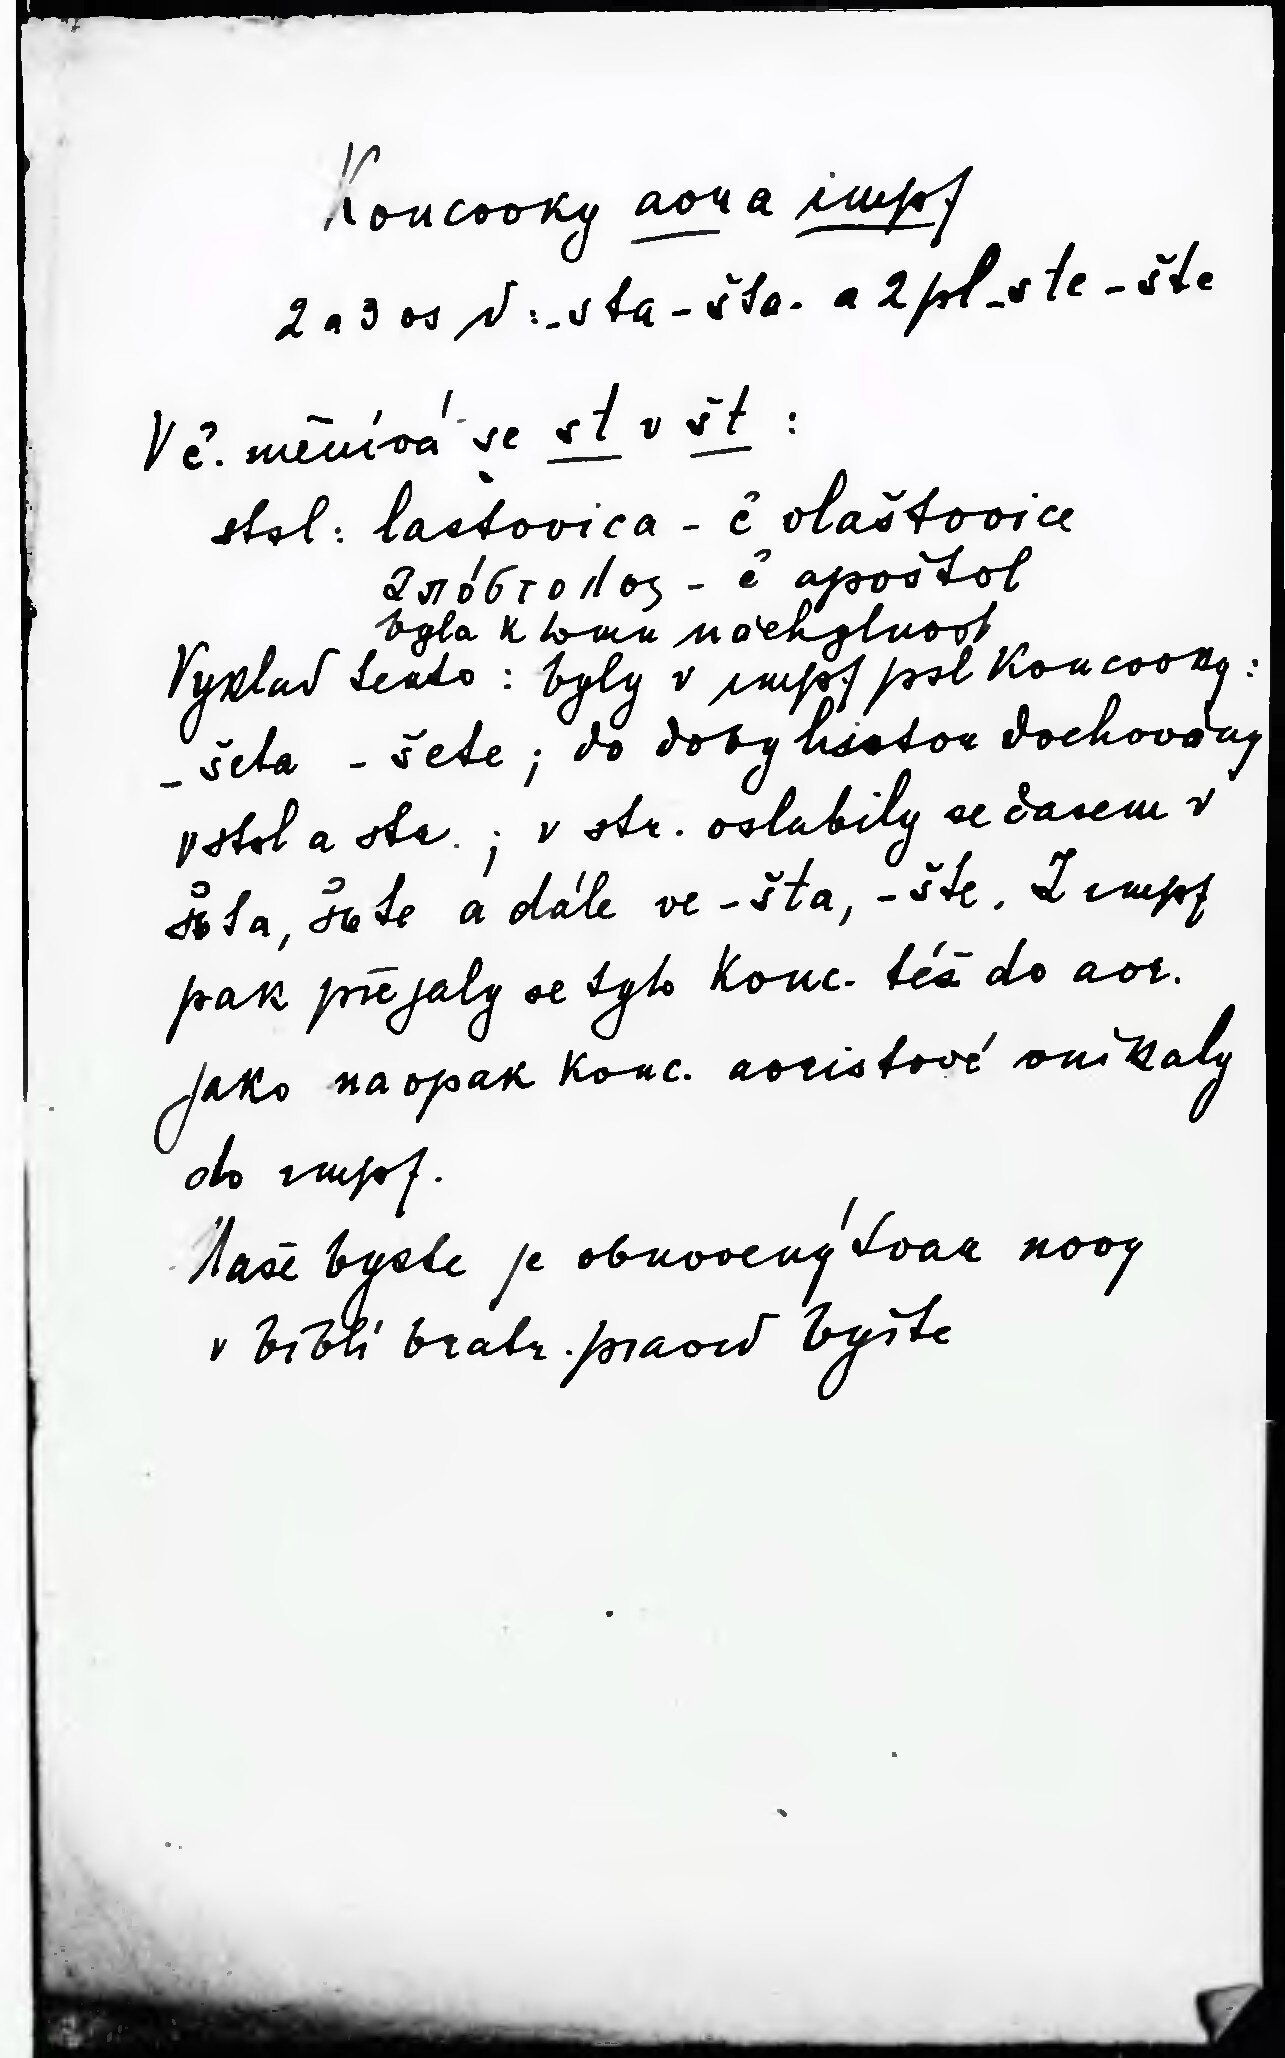 Koncovky aor a impf
2 a 3 os d: -sta -šta. a 2 pl -ste -šte
V č. měnívá se st v št:
stsl: lastovica - č vlaštovice
ἀπόστολος - č apoštol
byla k tomu náchylnost
Vyklad tento: byly v impf psl koncovky:
-šeta -šete; do doby histor dochovány
v stsl a str.; v str. oslabily se časem v
šьta, šьte a dále ve -šta, -šte. Z impf
pak přejaly se tyto konc. též do aor.
jako naopak konc. aoristové vnikaly
do impf.
Naše byste je obnovený tvar nový
v bibli bratr. pravid byšte